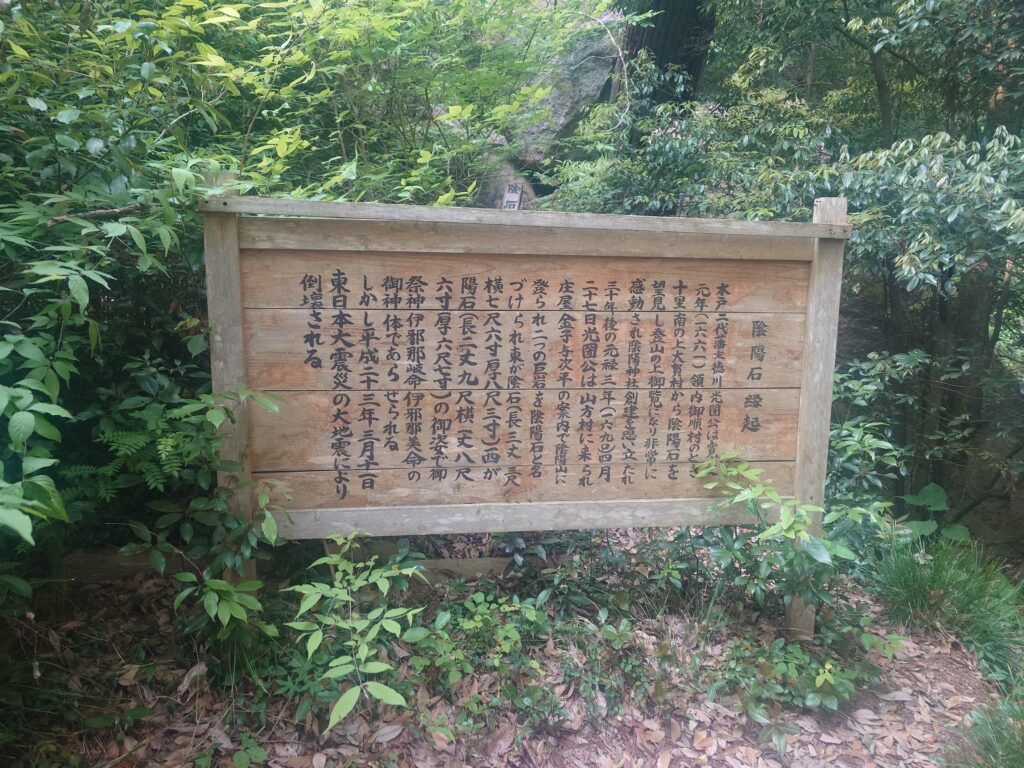 陰陽石 縁起
水戸二代藩主徳川 光圀公は寛
元年(一六六一)領内御順村のと
十里南の上大賀村から陰陽石を
望見し登山の上御覧になり非常に
感動され陰陽神社創建を思い立たれ
三十年後の元禄三年(一六九〇)四月
二十七日光圀公は山方村に来られ
庄屋金子与次平の案内で陰陽山に
登られ二つの巨石を陰陽石と名
づけられ東が陰石(長三丈一尺
横七尺六寸厚八尺三寸)西が
陽石(長二丈九尺横一丈八尺
六寸厚六尺七寸)の御姿で御
祭神伊邪那岐命伊邪那美命の
御神体であらせられる
しかし平成二十三年三月十一日
東日本大震災の大地震により
倒壊される
陰石